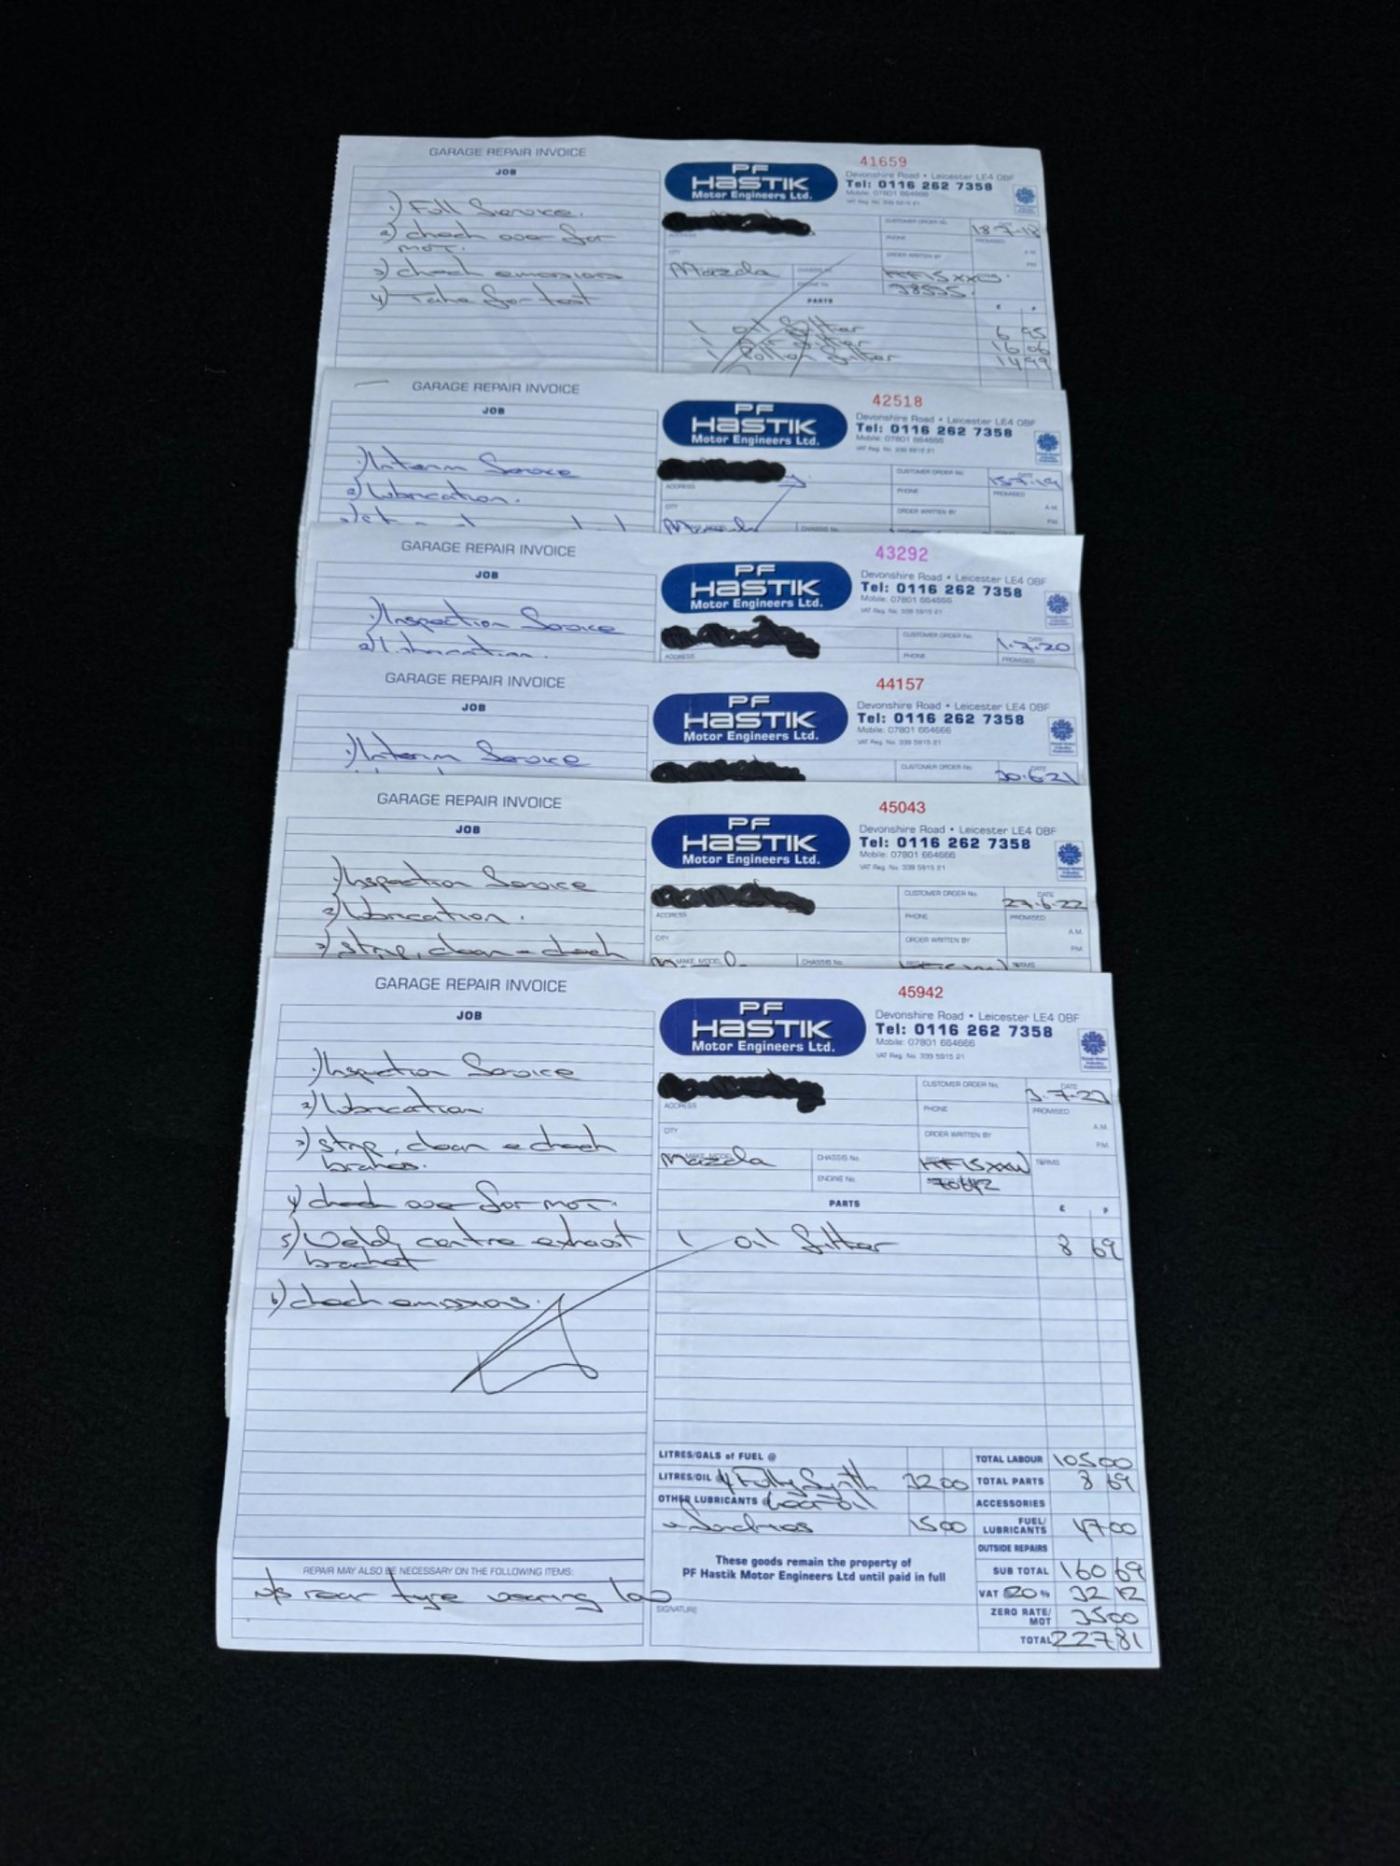 GARAGE REPAIR INVOICE
JOB
1) Full Service.
2) check over for
MOT.
3) check emissions
4) Take for test
41659
PF
HASTIK
Motor Engineers Ltd.
Devonshire Road • Leicester LE4 0BF
Tel: 0116 262 7358
Mobile: 07801 664666
VAT Reg. No. 339 5915 21
CUSTOMER ORDER No.
18-7-18
ADDRESS
PHONE
PROMISED
CITY
ORDER WRITTEN BY
A.M.
P.M.
Mazda
CHASSIS No.
ENGINE No.
38535.
PARTS
£ P
1 oil filter 6 95
1 Air filter 16 06
1 Pollen filter 14 99
GARAGE REPAIR INVOICE
JOB
1) Interim Service
2) Lubrication.
42518
PF
HASTIK
Motor Engineers Ltd.
Devonshire Road • Leicester LE4 0BF
Tel: 0116 262 7358
Mobile: 07801 664666
VAT Reg. No. 339 5915 21
CUSTOMER ORDER No.
DATE
15-7-19
ADDRESS
PHONE
PROMISED
CITY
ORDER WRITTEN BY
A.M.
P.M.
Mazda
CHASSIS No.
GARAGE REPAIR INVOICE
JOB
1) Inspection Service
2) Lubrication.
43292
PF
HASTIK
Motor Engineers Ltd.
Devonshire Road • Leicester LE4 0BF
Tel: 0116 262 7358
Mobile: 07801 664666
VAT Reg. No. 339 5915 21
CUSTOMER ORDER No.
DATE
1.7.20
ADDRESS
PHONE
PROMISED
GARAGE REPAIR INVOICE
JOB
1) Interim Service
44157
PF
HASTIK
Motor Engineers Ltd.
Devonshire Road • Leicester LE4 0BF
Tel: 0116 262 7358
Mobile: 07801 664666
VAT Reg. No. 339 5915 21
CUSTOMER ORDER No.
DATE
30.6.21
GARAGE REPAIR INVOICE
JOB
1) Inspection Service
2) Lubrication.
3) strip, clean & check
45043
PF
HASTIK
Motor Engineers Ltd.
Devonshire Road • Leicester LE4 0BF
Tel: 0116 262 7358
Mobile: 07801 664666
VAT Reg. No. 339 5915 21
CUSTOMER ORDER No.
DATE
27.6.22
ADDRESS
PHONE
PROMISED
CITY
ORDER WRITTEN BY
A.M.
P.M.
MAKE MODEL
CHASSIS No.
TERMS
GARAGE REPAIR INVOICE
JOB
1) Inspection Service
2) Lubrication
3) strip, clean & check
brakes.
4) check over for MOT.
5) Weld centre exhaust
bracket
6) check emissions.
REPAIR MAY ALSO BE NECESSARY ON THE FOLLOWING ITEMS:
N/S rear tyre wearing low
45942
PF
HASTIK
Motor Engineers Ltd.
Devonshire Road • Leicester LE4 0BF
Tel: 0116 262 7358
Mobile: 07801 664666
VAT Reg. No. 339 5915 21
CUSTOMER ORDER No.
DATE
3.7.23
ADDRESS
PHONE
PROMISED
CITY
ORDER WRITTEN BY
A.M.
P.M.
Mazda
CHASSIS No.
TERMS
ENGINE No.
70642
PARTS
£ P
1 oil filter 8 69
LITRES/GALS of FUEL @
LITRES/OIL 4 Fully Synth 32 00
OTHER LUBRICANTS @ Gear oil
& Sundries 15 00
TOTAL LABOUR 105 00
TOTAL PARTS 8 69
ACCESSORIES
FUEL/LUBRICANTS 47 00
OUTSIDE REPAIRS
SUB TOTAL 160 69
VAT 20 % 32 12
ZERO RATE/MOT 35 00
TOTAL 227 81
These goods remain the property of
PF Hastik Motor Engineers Ltd until paid in full
SIGNATURE